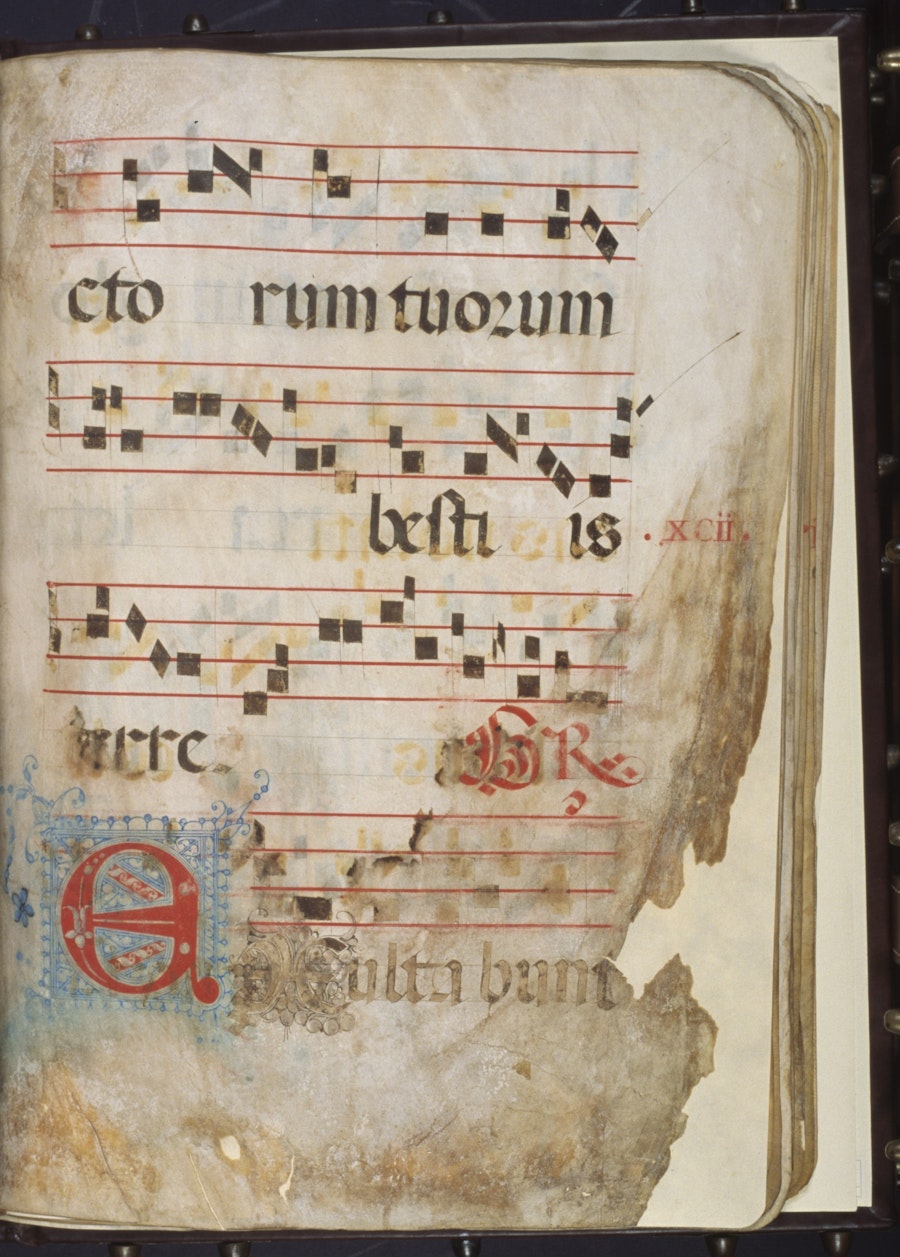 cto rum tuorum
besti is
·xcii·
terre. GR
Exultabunt